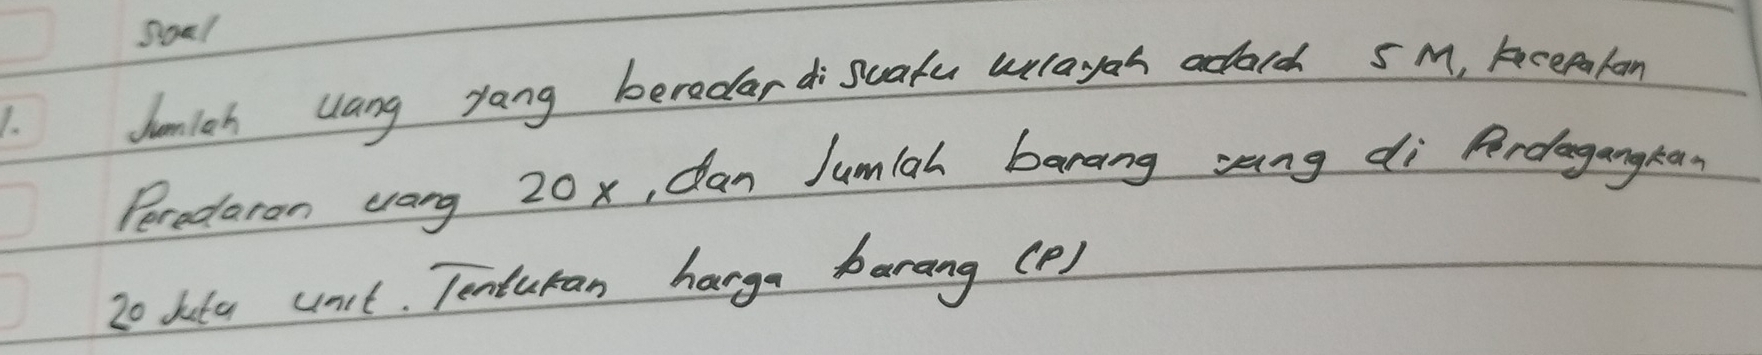 Soal
1. Jumlah uang yang beredar di suatu wilayah adalah 5 M, kecepatan
Peredaran uang 20 x, dan Jumlah barang yang di Perdagangkan
20 Juta unit. Tentukan harga barang (P)